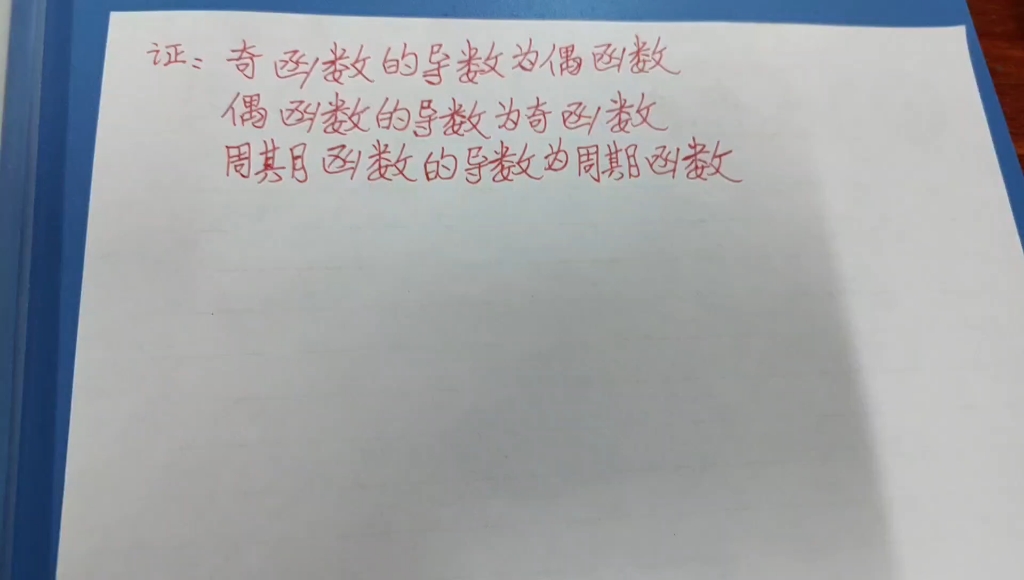 证：奇函数的导数为偶函数
偶函数的导数为奇函数
周期函数的导数为周期函数